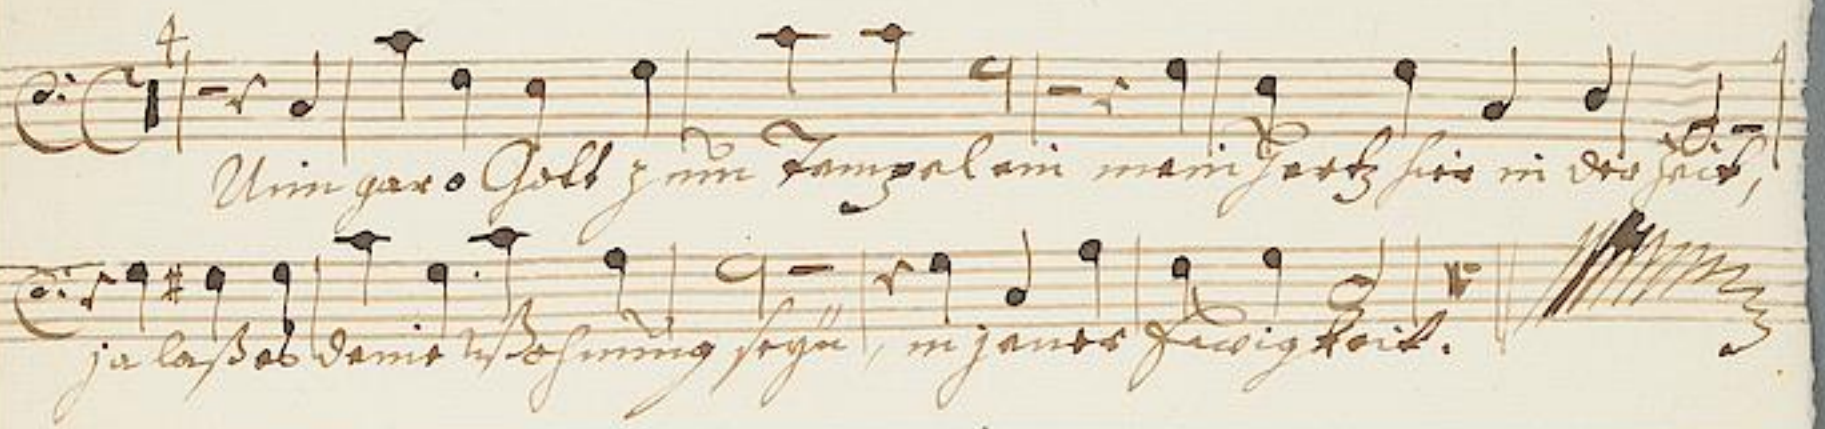 4
Nim gar o Gott zum Tempel ein mein Hertz hier in der Zeit,
ja laß es deine Wohnung seyn, in jener Ewigkeit.